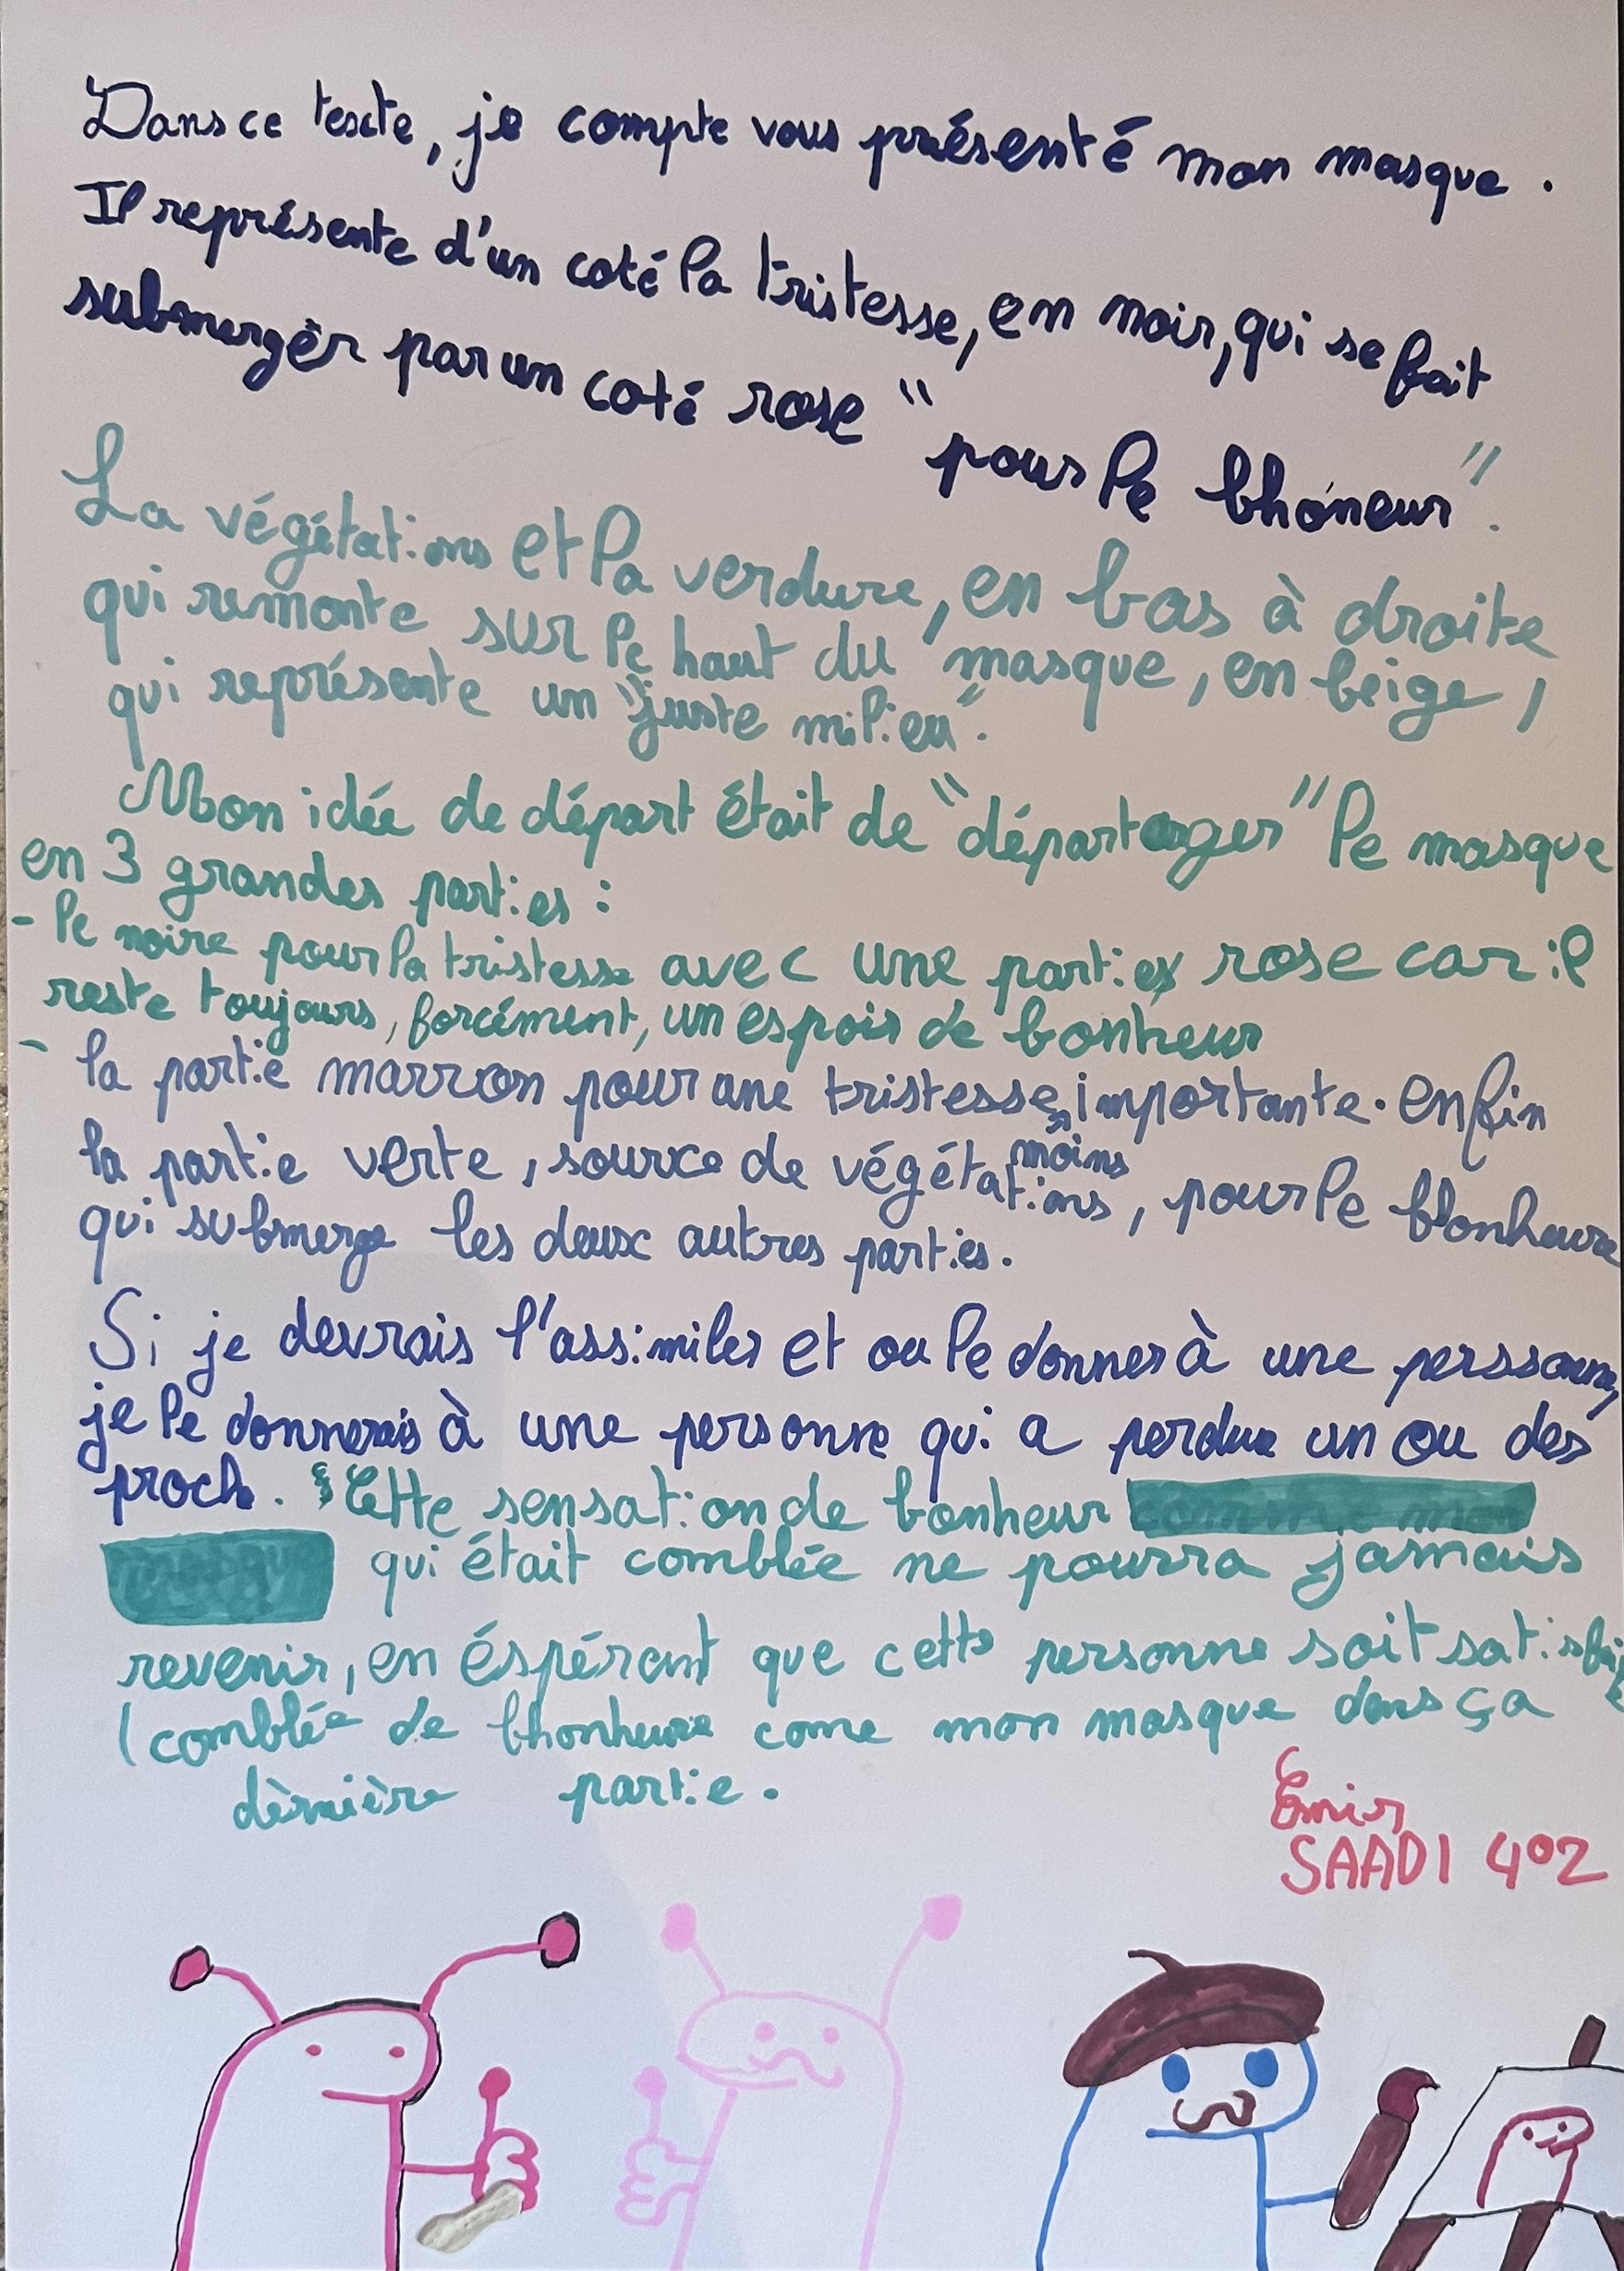 Dans ce texte, je compte vous présenté mon masque.
Il représente d'un coté la tristesse, en noir, qui se fait
submergèr par un coté rose "pour le bhoneur".
La végétations et la verdure, en bas à droite
qui remonte sur le haut du masque, en beige,
qui représente un "juste milieu".
Mon idée de départ était de "départager" le masque
en 3 grandes parties :
- le noire pour la tristesse avec une partie rose car il
reste toujours, forcément, un espoir de bonheur
- la partie marron pour une tristesse moins importante. enfin
la partie verte, source de végétations, pour le bonheure
qui submerge les deux autres parties.
Si je devrais l'assimiler et ou le donner à une perssonne,
je le donnerais à une personne qui a perdue un ou des
proch. Cette sensation de bonheur
qui était comblée ne pourra jamais
revenir, en éspérant que cette personne soit satisfait
(comblée de bhonheure come mon masque dans ça
dèrnière partie.
Emir
SAADI 402